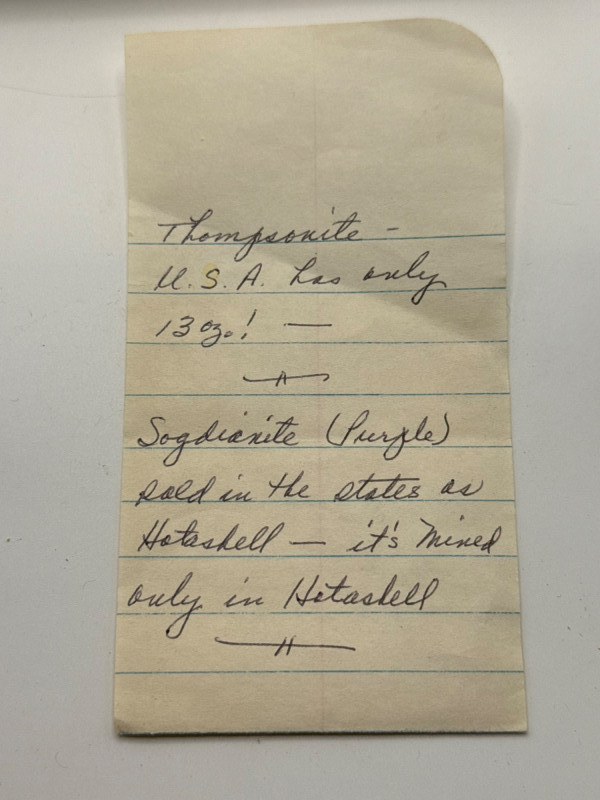 Thompsonite -
U.S.A. has only
13 oz.! —
Sogdianite (Purple)
sold in the states as
Hotashell — it's mined
only in Hotashell